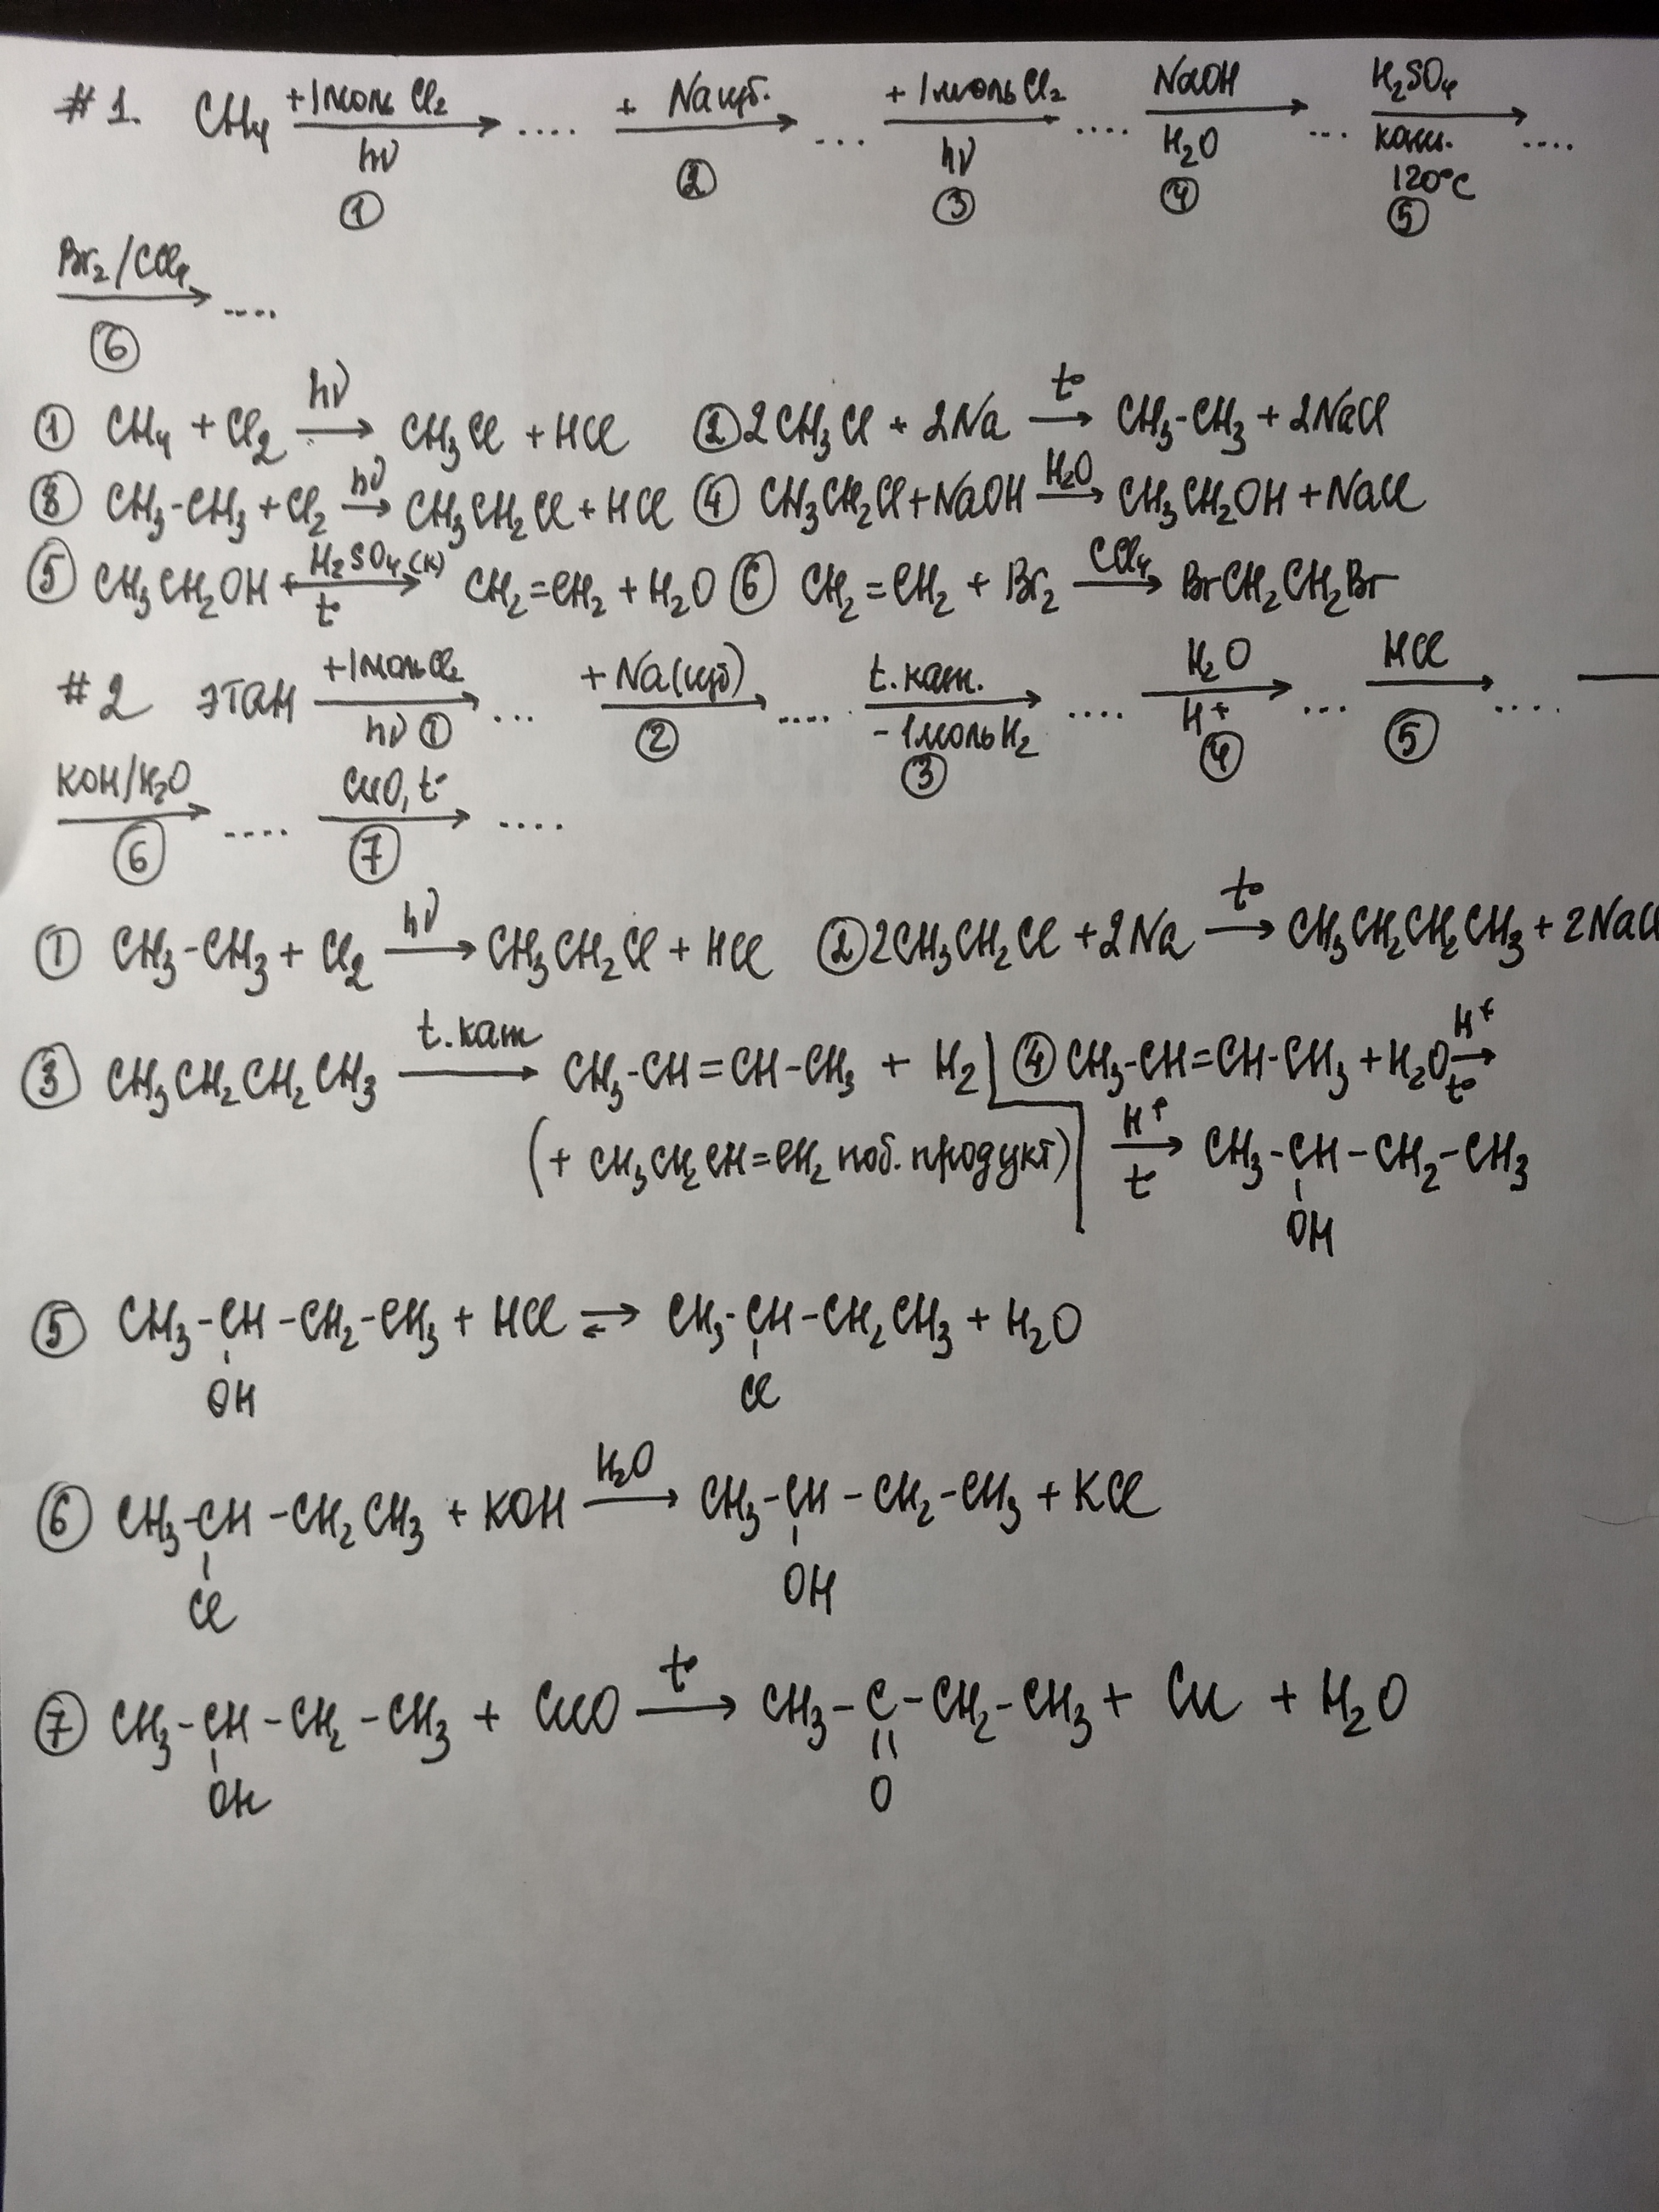 #1. CH₄ +1моль Cl₂ hν ① → .... + Na изб. ② → ... + 1моль Cl₂ hν ③ → .... NaOH H₂O ④ → ... H₂SO₄ конц. 120°C ⑤ → ....
Br₂/CCl₄ ⑥ → ....
① CH₄ + Cl₂ hν → CH₃Cl + HCl ② 2CH₃Cl + 2Na t° → CH₃-CH₃ + 2NaCl
③ CH₃-CH₃ + Cl₂ hν → CH₃CH₂Cl + HCl ④ CH₃CH₂Cl + NaOH H₂O → CH₃CH₂OH + NaCl
⑤ CH₃CH₂OH + H₂SO₄(к) t° → CH₂=CH₂ + H₂O ⑥ CH₂=CH₂ + Br₂ CCl₄ → BrCH₂CH₂Br
#2 этан +1моль Cl₂ hν ① → ... + Na(изб) ② → .... t. кат. -1моль H₂ ③ → .... H₂O H⁺ ④ → ... HCl ⑤ → .... —
KOH/H₂O ⑥ → .... CuO, t° ⑦ → ....
① CH₃-CH₃ + Cl₂ hν → CH₃CH₂Cl + HCl ② 2CH₃CH₂Cl + 2Na t° → CH₃CH₂CH₂CH₃ + 2NaCl
③ CH₃CH₂CH₂CH₃ t. кат → CH₃-CH=CH-CH₃ + H₂ ④ CH₃-CH=CH-CH₃ + H₂O H⁺ t° →
(+ CH₃CH₂CH=CH₂ поб. продукт) H⁺ t° → CH₃-CH-CH₂-CH₃
OH
⑤ CH₃-CH-CH₂-CH₃ + HCl ⇌ CH₃-CH-CH₂CH₃ + H₂O
OH Cl
⑥ CH₃-CH-CH₂CH₃ + KOH H₂O → CH₃-CH-CH₂-CH₃ + KCl
Cl OH
⑦ CH₃-CH-CH₂-CH₃ + CuO t° → CH₃-C-CH₂-CH₃ + Cu + H₂O
OH O